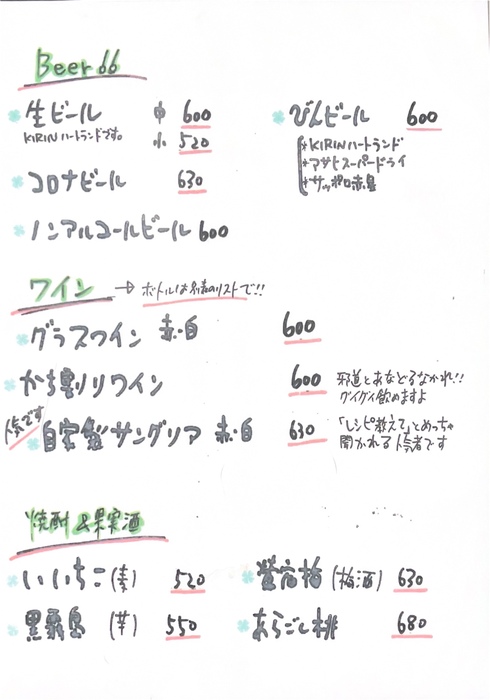 Beer
生ビール 中 600
KIRINハートランドです。 小 520
コロナビール 630
ノンアルコールビール 600
びんビール 600
*KIRINハートランド
*アサヒスーパードライ
*サッポロ赤星
ワイン → ボトルは別紙のリストで!!
グラスワイン 赤・白 600
かち割りワイン 600 邪道とあなどるなかれ!!
グイグイ飲めますよ
人気です 自家製サングリア 赤・白 630 「レシピ教えて」とめっちゃ
聞かれる人気者です
焼酎 & 果実酒
いいちこ (麦) 520
黒霧島 (芋) 550
鶯宿梅 (梅酒) 630
あらごし桃 680